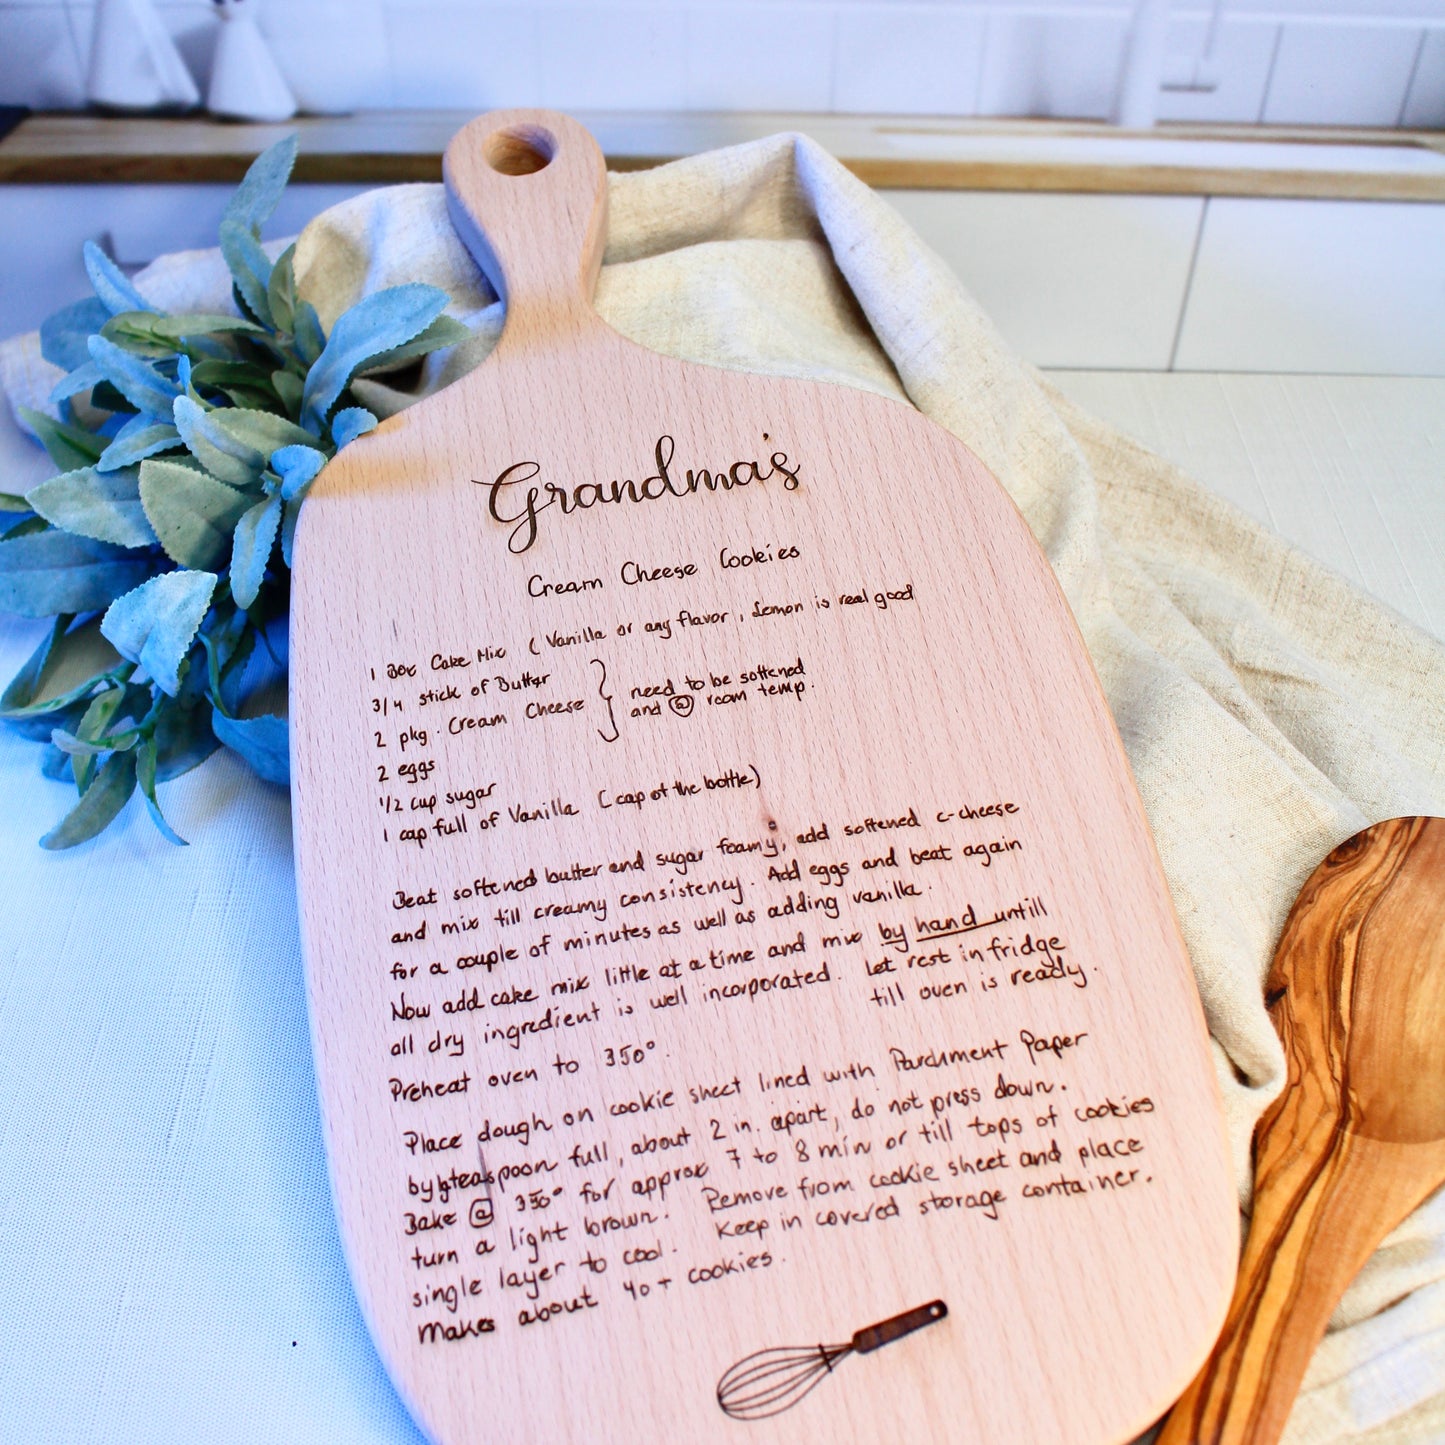 Grandma's
Cream Cheese Cookies
1 Box Cake Mix ( Vanilla or any flavor , Lemon is real good
3/4 stick of Butter
2 pkg. Cream Cheese } need to be softened
and @ room temp.
2 eggs
1/2 cup sugar
1 cap full of Vanilla (cap of the bottle)
Beat softened butter and sugar foamy, add softened c-cheese
and mix till creamy consistency. Add eggs and beat again
for a couple of minutes as well as adding vanilla.
Now add cake mix little at a time and mix by hand untill
all dry ingredient is well incorporated. Let rest in fridge
till oven is ready.
Preheat oven to 350°.
Place dough on cookie sheet lined with Parchment Paper
by teaspoon full, about 2 in. apart, do not press down.
Bake @ 350° for approx 7 to 8 min or till tops of cookies
turn a light brown. Remove from cookie sheet and place
single layer to cool. Keep in covered storage container.
Makes about 40+ cookies.